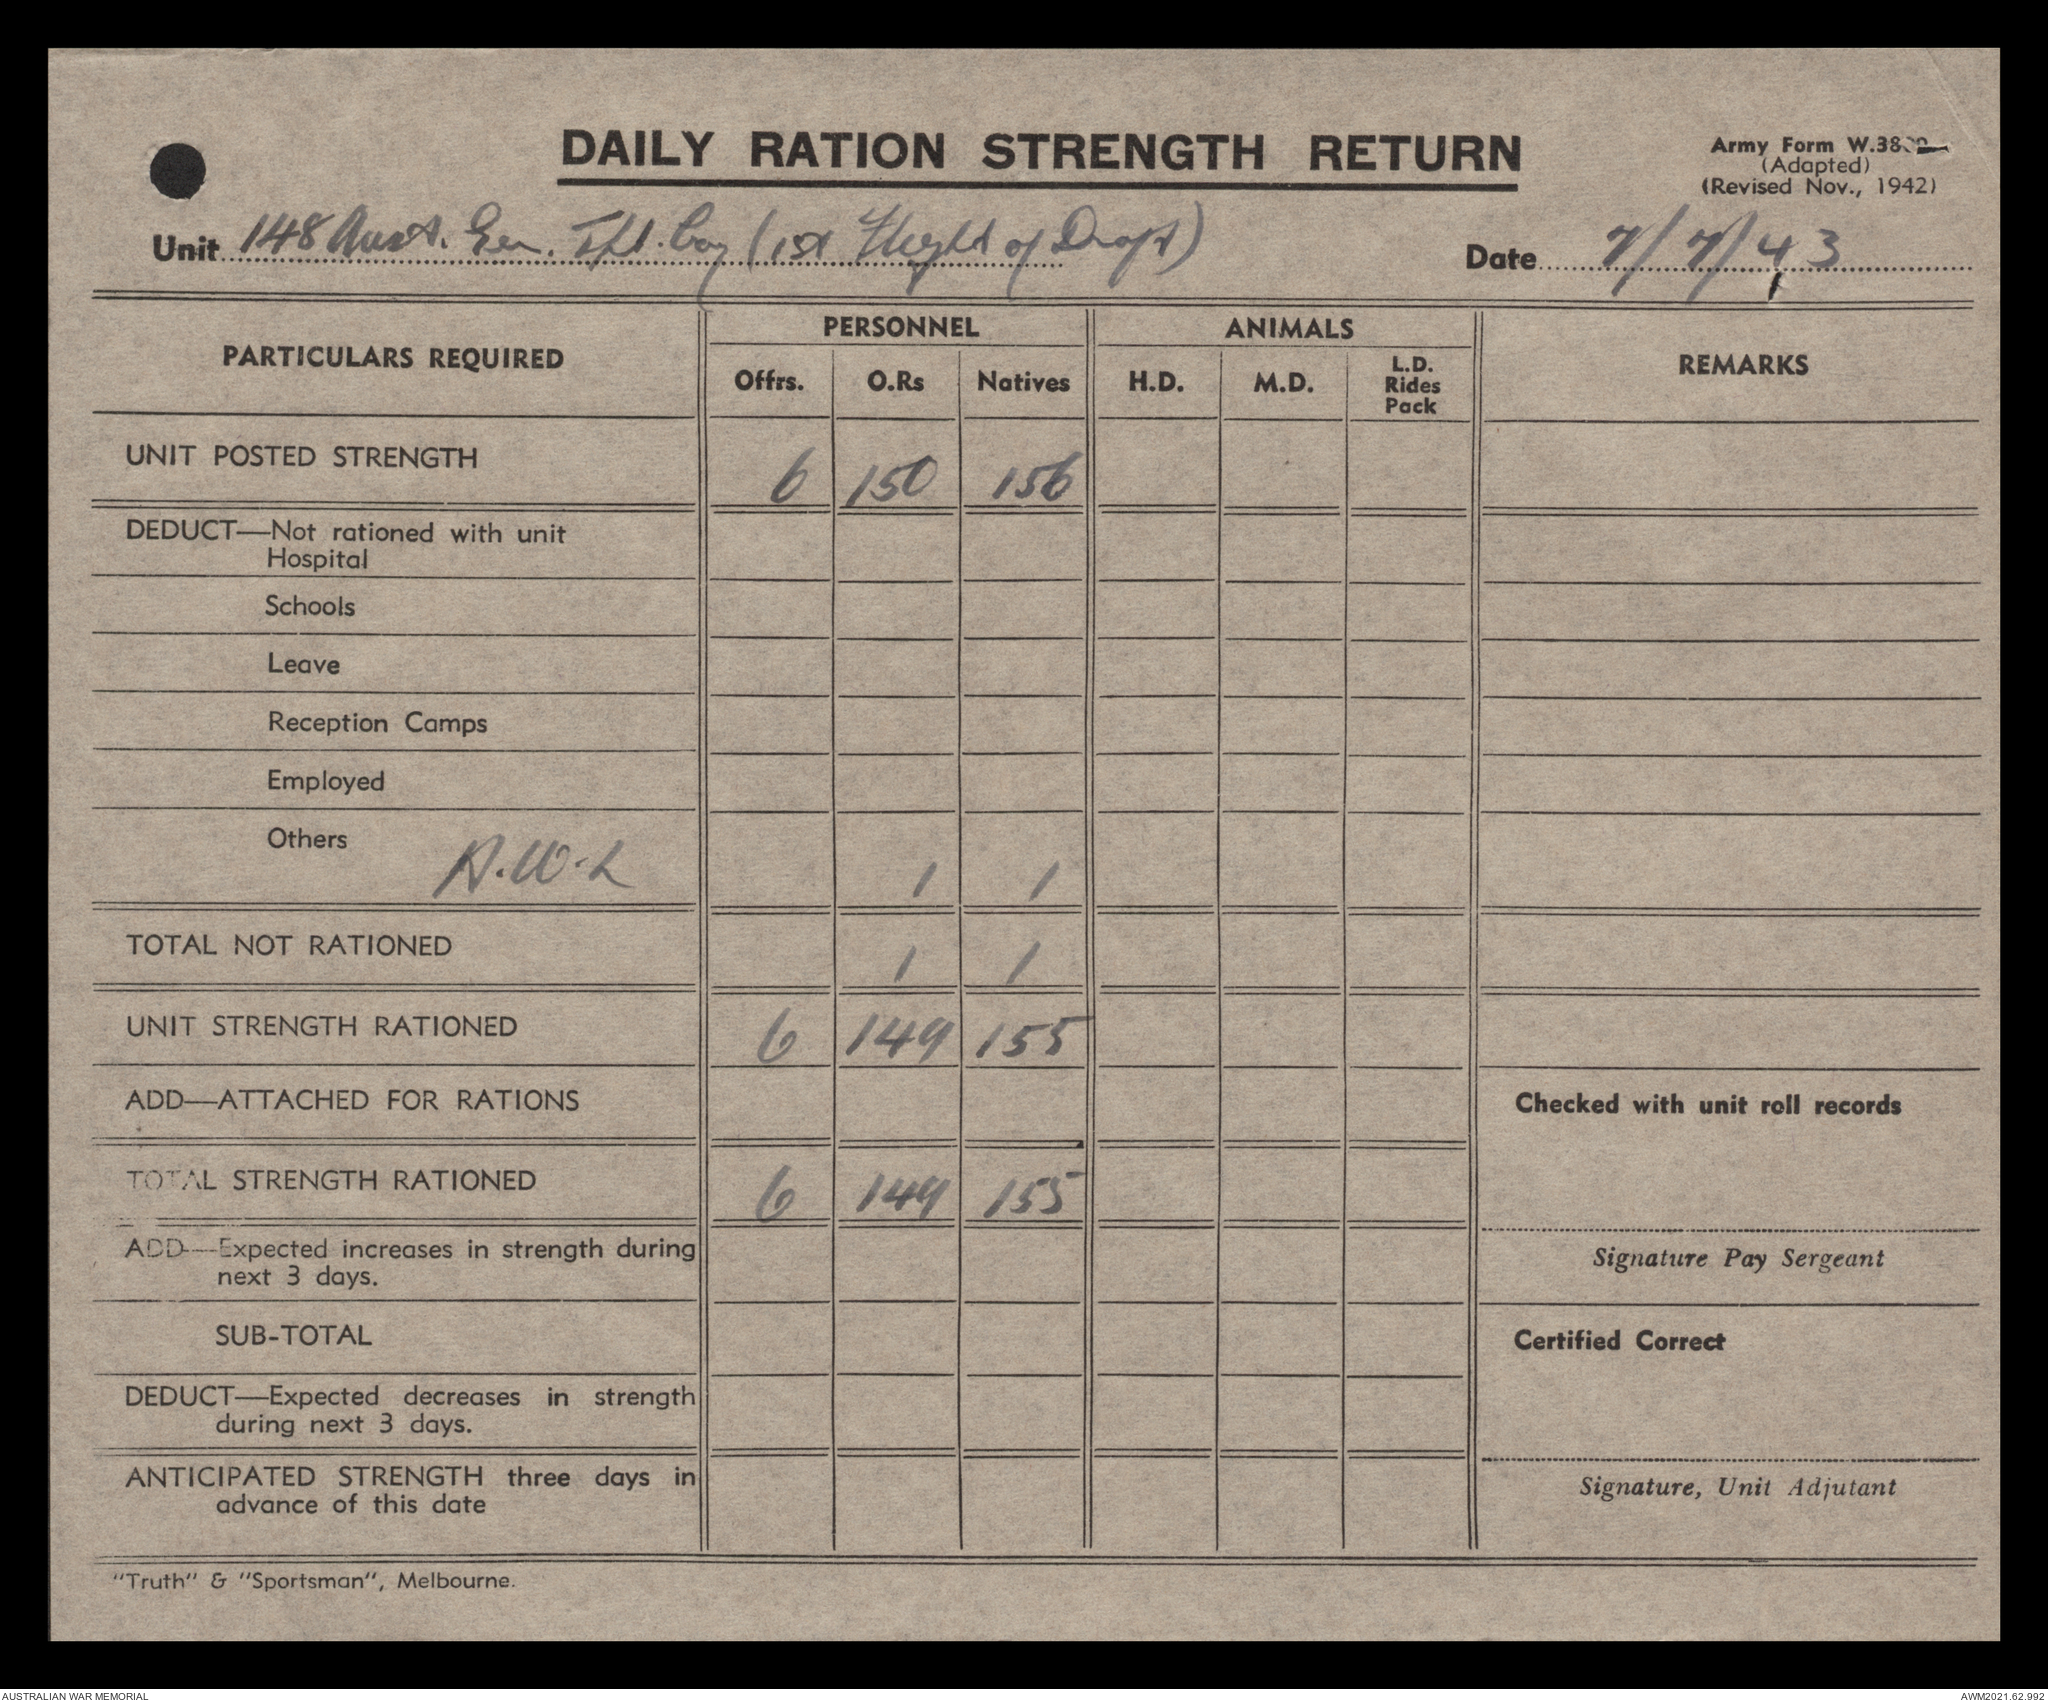 DAILY RATION STRENGTH RETURN
Army Form W.38
(Adapted)
(Revised Nov., 1942)
Unit 148 Aust. Gen. Tpt. Coy (1st Flight of Draft)
Date 7/7/43
PARTICULARS REQUIRED
PERSONNEL
ANIMALS
REMARKS
Offrs. O.Rs Natives H.D. M.D. L.D. Rides Pack
UNIT POSTED STRENGTH 6 150 156
DEDUCT—Not rationed with unit
Hospital
Schools
Leave
Reception Camps
Employed
Others A.W.L 1 1
TOTAL NOT RATIONED 1 1
UNIT STRENGTH RATIONED 6 149 155
ADD—ATTACHED FOR RATIONS
Checked with unit roll records
TOTAL STRENGTH RATIONED 6 149 155
ADD—Expected increases in strength during
next 3 days.
Signature Pay Sergeant
SUB-TOTAL
Certified Correct
DEDUCT—Expected decreases in strength
during next 3 days.
ANTICIPATED STRENGTH three days in
advance of this date
Signature, Unit Adjutant
"Truth" & "Sportsman", Melbourne.
AUSTRALIAN WAR MEMORIAL
AWM2021.62.992